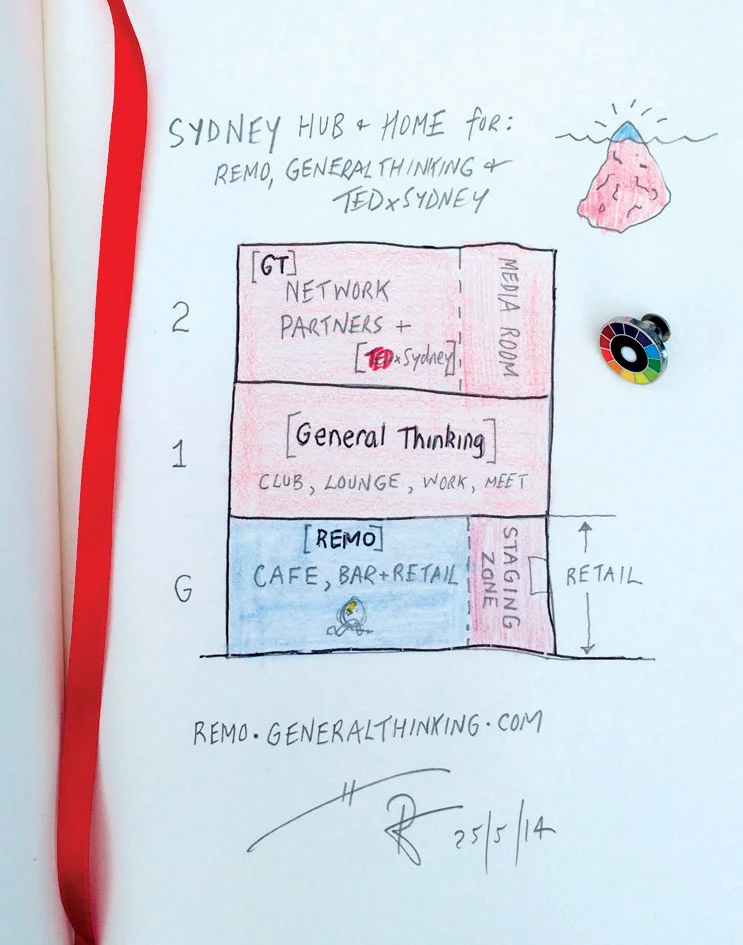 SYDNEY HUB + HOME for:
REMO, GENERALTHINKING +
TEDxSYDNEY
2
[GT]
NETWORK
PARTNERS +
[TEDxSydney]
MEDIA ROOM
1
[General Thinking]
CLUB, LOUNGE, WORK, MEET
G
[REMO]
CAFE, BAR+RETAIL
STAGING
ZONE
RETAIL
REMO.GENERALTHINKING.COM
25/5/14